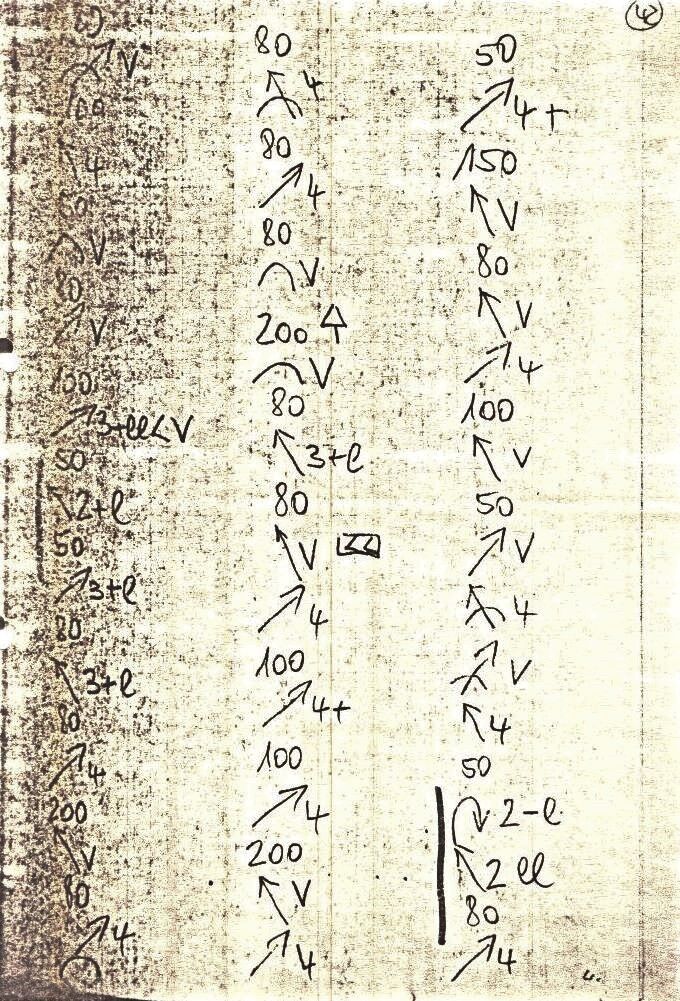 4
V
4
V
80
V
100
3+ll<V
50
2+l
50
3+l
80
3+l
80
4
200
V
80
4
80
4
80
4
80
V
200
V
80
3+l
80
V
4
100
4+
100
4
200
V
4
50
4+
150
V
80
V
4
100
V
50
V
4
V
4
50
2-l
2 ll
80
4